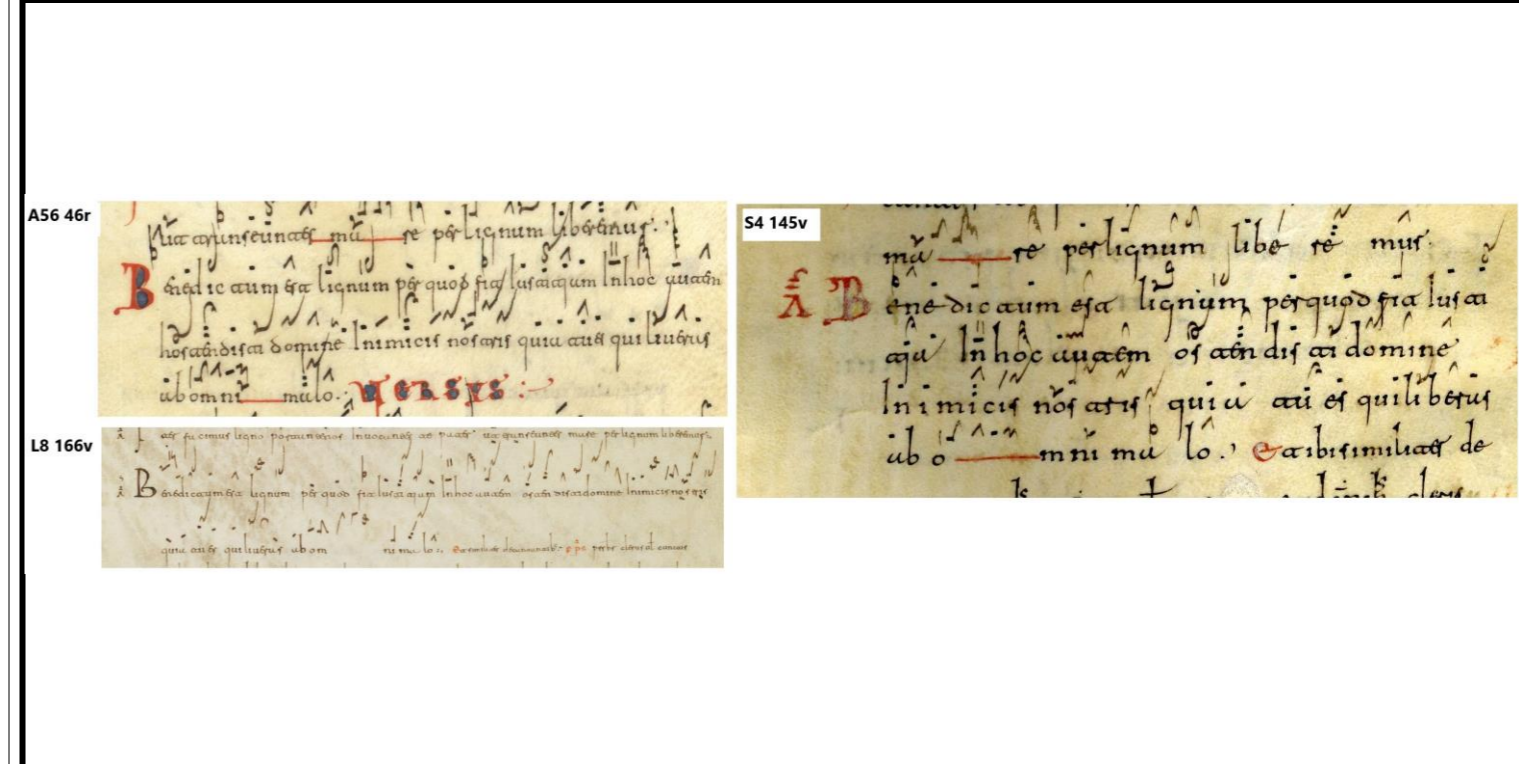 A56 46r
transeuntes ma re per lignum liberemur
Benedictum est lignum per quod fit iustitia In hoc autem
hostendisti domine Inimicis nostris quia tu es qui liueras
ab omni malo. VERSVS:
L8 166v
facimus ligno te pater ut transeuntes mare per lignum
Benedictum est lignum per quod fit iustitia In hoc autem ostendisti domine Inimicis nostris
quia tu es qui liueras ab om ni malo
S4 145v
ma re per lignum libe re mur
Benedictum est lignum per quod fit iusti
tia In hoc autem ostendisti domine
Inimicis nostris quia tu es qui liberas
ab o mni ma lo. similiter de